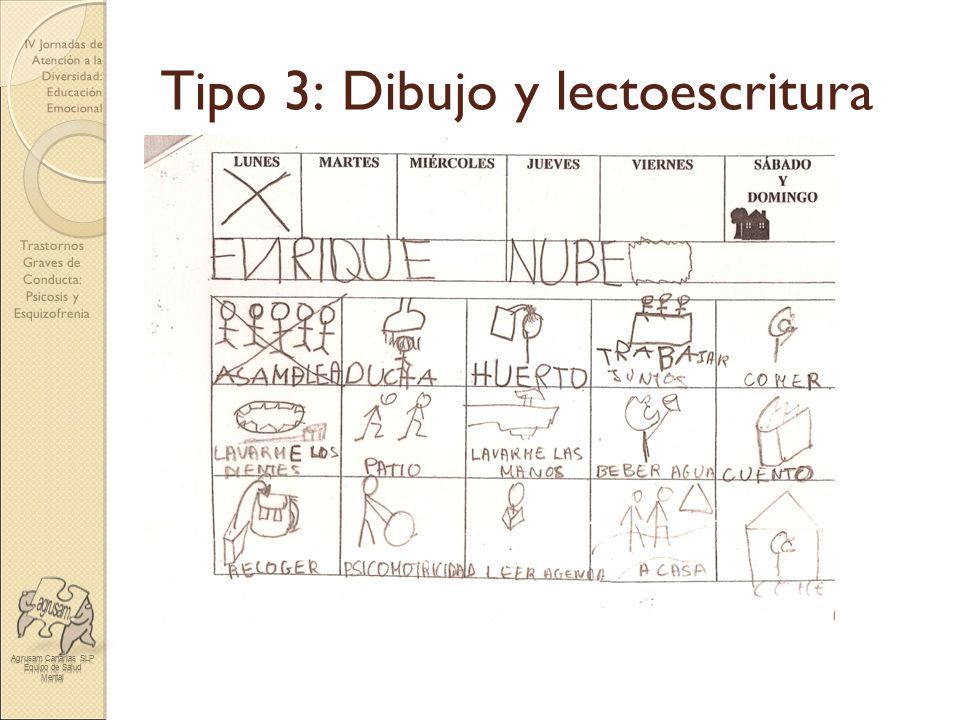 IV Jornadas de
Atención a la
Diversidad:
Educación
Emocional
Trastornos
Graves de
Conducta:
Psicosis y
Esquizofrenia
agrusam
Agrusam Canarias SLP
Equipo de Salud
Mental
Tipo 3: Dibujo y lectoescritura
LUNES MARTES MIÉRCOLES JUEVES VIERNES SÁBADO
Y
DOMINGO
ENRIQUE NUBE
ASAMBLEA DUCHA HUERTO TRABAJAR
JUNTOS COMER
LAVARME LOS
DIENTES PATIO LAVARME LAS
MANOS BEBER AGUA CUENTO
RECOGER PSICOMOTRICIDAD LEER AGENDA A CASA COME